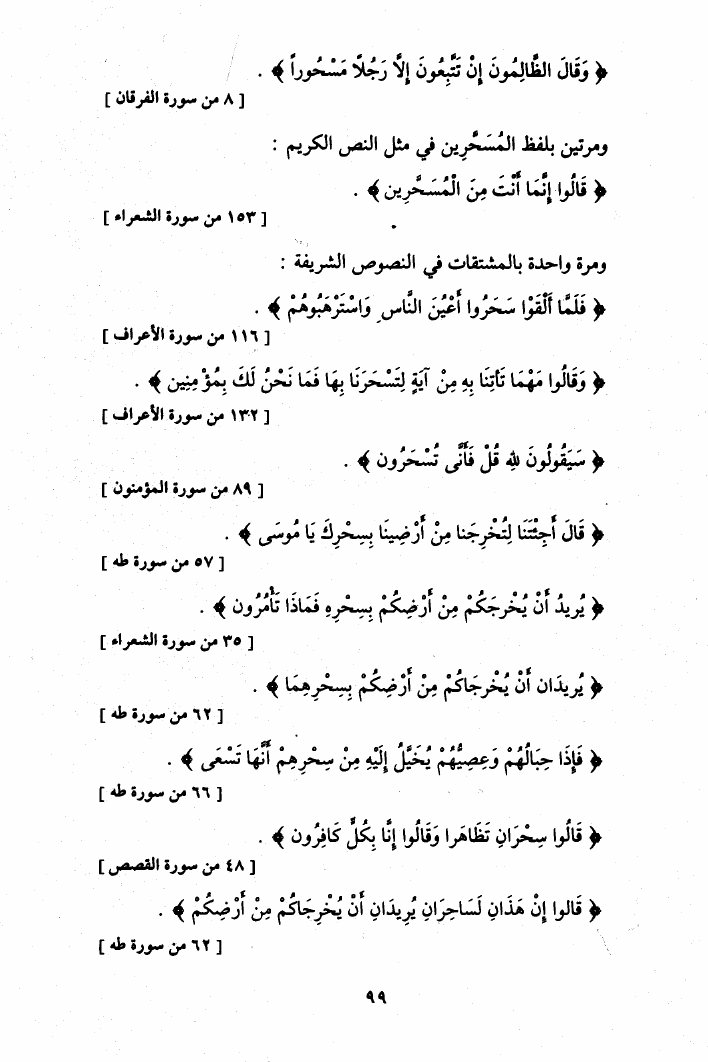 ﴿ وَقَالَ الظَّالِمُونَ إِنْ تَتَّبِعُونَ إِلاَّ رَجُلاً مَسْحُوراً ﴾ .
[ ٨ من سورة الفرقان ]
ومرتين بلفظ المُسَحَّرِين في مثل النص الكريم :
﴿ قَالُوا إِنَّمَا أَنْتَ مِنَ الْمُسَحَّرِين ﴾ .
[ ١٥٣ من سورة الشعراء ]
ومرة واحدة بالمشتقات في النصوص الشريفة :
﴿ فَلَمَّا أَلْقَوْا سَحَرُوا أَعْيُنَ النَّاسِ وَاسْتَرْهَبُوهُمْ ﴾ .
[ ١١٦ من سورة الأعراف ]
﴿ وَقَالُوا مَهْمَا تَأْتِنَا بِهِ مِنْ آيَةٍ لِتَسْحَرَنَا بِهَا فَمَا نَحْنُ لَكَ بِمُؤْمِنِين ﴾ .
[ ١٣٢ من سورة الأعراف ]
﴿ سَيَقُولُونَ لِلهِ قُلْ فَأَنَّى تُسْحَرُون ﴾ .
[ ٨٩ من سورة المؤمنون ]
﴿ قَالَ أَجِئْتَنَا لِتُخْرِجَنا مِنْ أَرْضِينَا بِسِحْرِكَ يَا مُوسَى ﴾ .
[ ٥٧ من سورة طه ]
﴿ يُرِيدُ أَنْ يُخْرِجَكُمْ مِنْ أَرْضِكُمْ بِسِحْرِهِ فَمَاذَا تَأْمُرُون ﴾ .
[ ٣٥ من سورة الشعراء ]
﴿ يُرِيدَانِ أَنْ يُخْرِجَاكُمْ مِنْ أَرْضِكُمْ بِسِحْرِهِمَا ﴾ .
[ ٦٢ من سورة طه ]
﴿ فَإِذَا حِبَالُهُمْ وَعِصِيُّهُمْ يُخَيَّلُ إِلَيْهِ مِنْ سِحْرِهِمْ أَنَّهَا تَسْعَى ﴾ .
[ ٦٦ من سورة طه ]
﴿ قَالُوا سِحْرَانِ تَظَاهَرا وَقَالُوا إِنَّا بِكُلٍّ كَافِرُون ﴾ .
[ ٤٨ من سورة القصص ]
﴿ قَالوا إِنْ هَذَانِ لَسَاحِرَانِ يُرِيدَانِ أَنْ يُخْرِجَاكُمْ مِنْ أَرْضِكُمْ ﴾ .
[ ٦٢ من سورة طه ]
٩٩